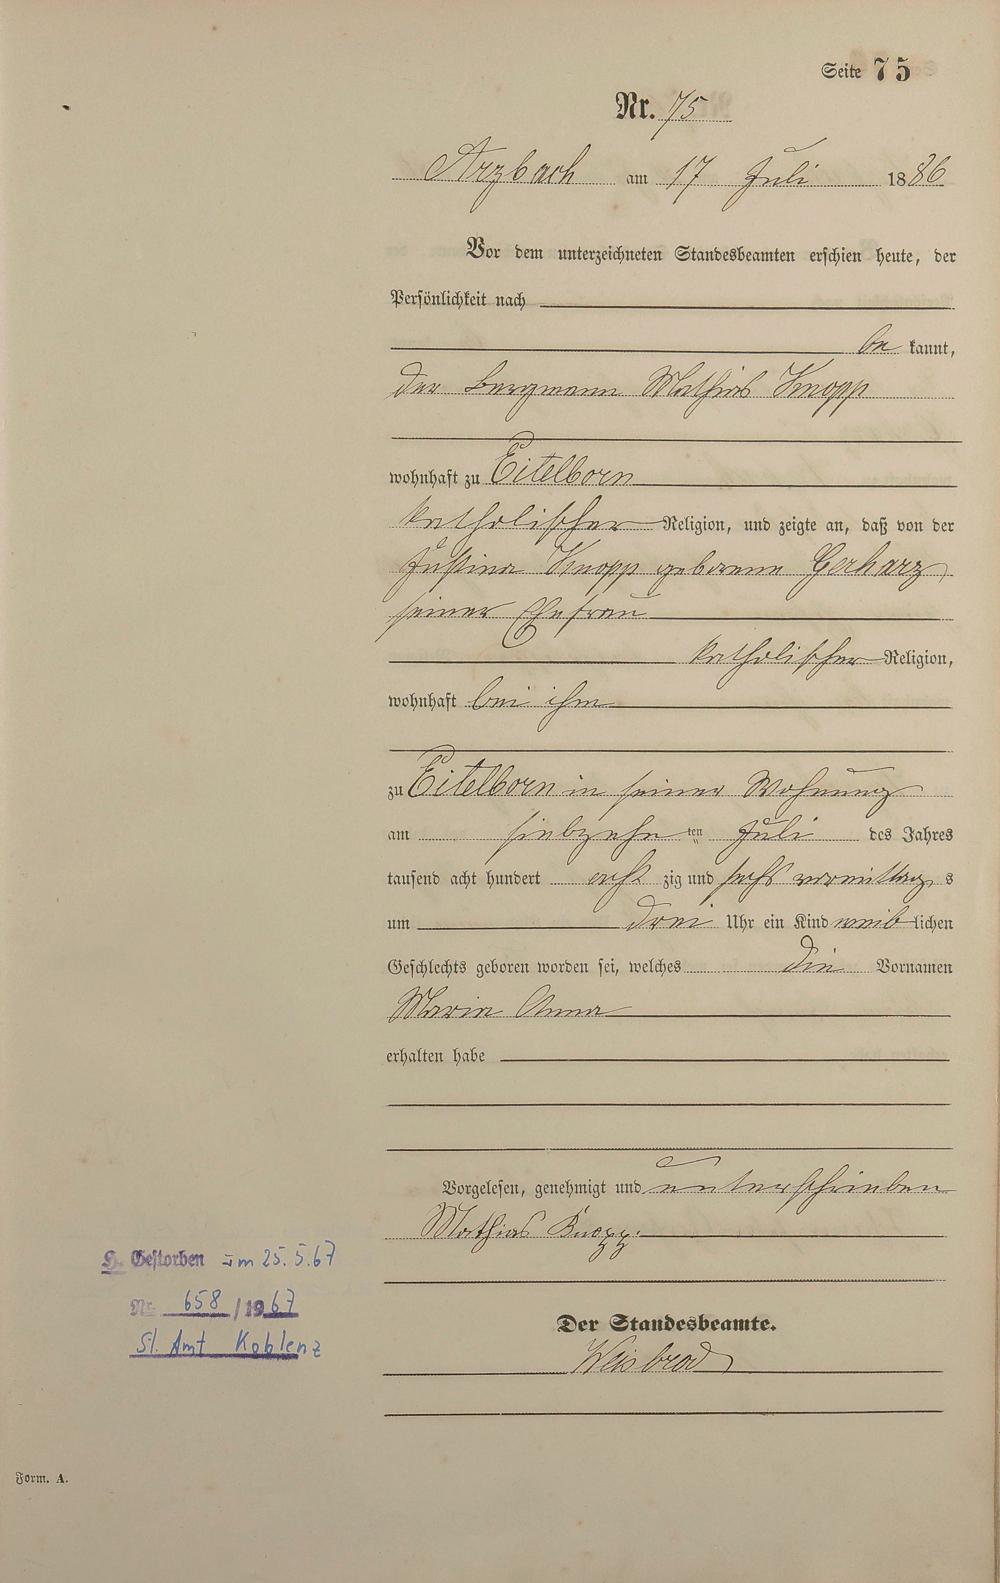 Seite 75
Nr. 75
Arzbach am 17 Juli 1886
Vor dem unterzeichneten Standesbeamten erschien heute, der
Persönlichkeit nach
be kannt,
der Bergmann Mathias Knopp
wohnhaft zu Eitelborn
katholischer Religion, und zeigte an, daß von der
Justina Knopp geborene Gerharz
seiner Ehefrau
katholischer Religion,
wohnhaft bei ihm
zu Eitelborn in seiner Wohnung
am siebzehn ten Juli des Jahres
tausend acht hundert acht zig und sechs vormittag s
um drei Uhr ein Kind weib lichen
Geschlechts geboren worden sei, welches die Vornamen
Maria Anna
erhalten habe
Vorgelesen, genehmigt und unterschrieben
Mathias Knopp.
Gestorben am 25.5.67
Nr. 658 / 1967
St. Amt Koblenz
Der Standesbeamte.
Weisbrod
Form. A.